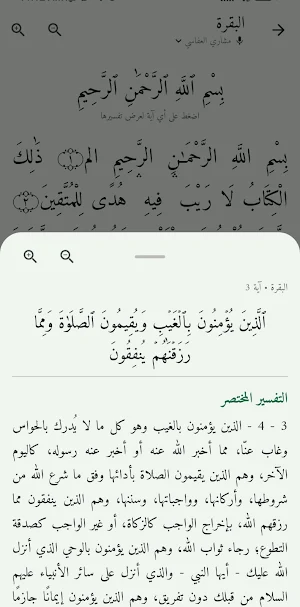 البقرة
مشاري العفاسي
بِسْمِ ٱللَّهِ ٱلرَّحْمَٰنِ ٱلرَّحِيمِ
اضغط على أي آية لعرض تفسيرها
بِسْمِ اللَّهِ الرَّحْمَٰنِ الرَّحِيمِ الم ١ ذَٰلِكَ
الْكِتَابُ لَا رَيْبَ فِيهِ هُدًى لِلْمُتَّقِينَ ٢
البقرة • آية 3
ٱلَّذِينَ يُؤْمِنُونَ بِٱلْغَيْبِ وَيُقِيمُونَ ٱلصَّلَوٰةَ وَمِمَّا
رَزَقْنَٰهُمْ يُنفِقُونَ
التفسير المختصر
3 - 4 - الذين يؤمنون بالغيب وهو كل ما لا يُدرك بالحواس
وغاب عنّا، مما أخبر الله عنه أو أخبر عنه رسوله، كاليوم
الآخر، وهم الذين يقيمون الصلاة بأدائها وفق ما شرع الله من
شروطها، وأركانها، وواجباتها، وسننها، وهم الذين ينفقون مما
رزقهم الله، بإخراج الواجب كالزكاة، أو غير الواجب كصدقة
التطوع؛ رجاء ثواب الله، وهم الذين يؤمنون بالوحي الذي أنزل
الله عليك - أيها النبي - والذي أنزل على سائر الأنبياء عليهم
السلام من قبلك دون تفريق، وهم الذين يؤمنون إيمانًا جازمًا